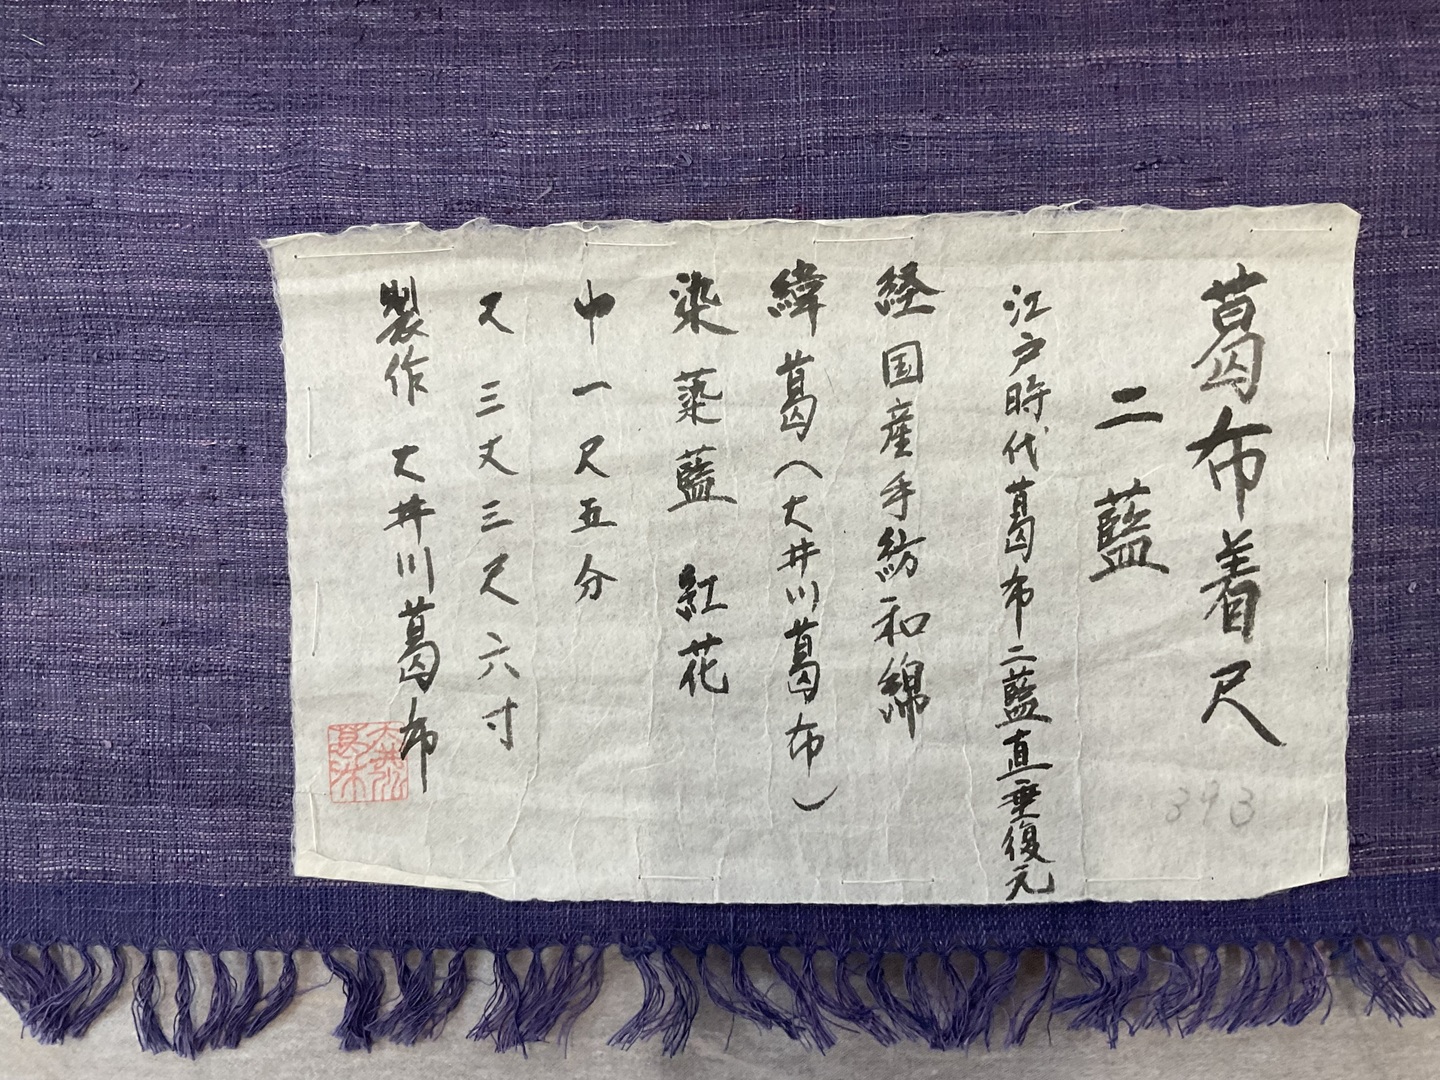 葛布着尺
二藍
江戸時代葛布二藍直垂復元
経国産手紡和綿
緯葛(大井川葛布)
染蒅藍 紅花
巾一尺五分
丈三丈三尺六寸
製作 大井川葛布
393